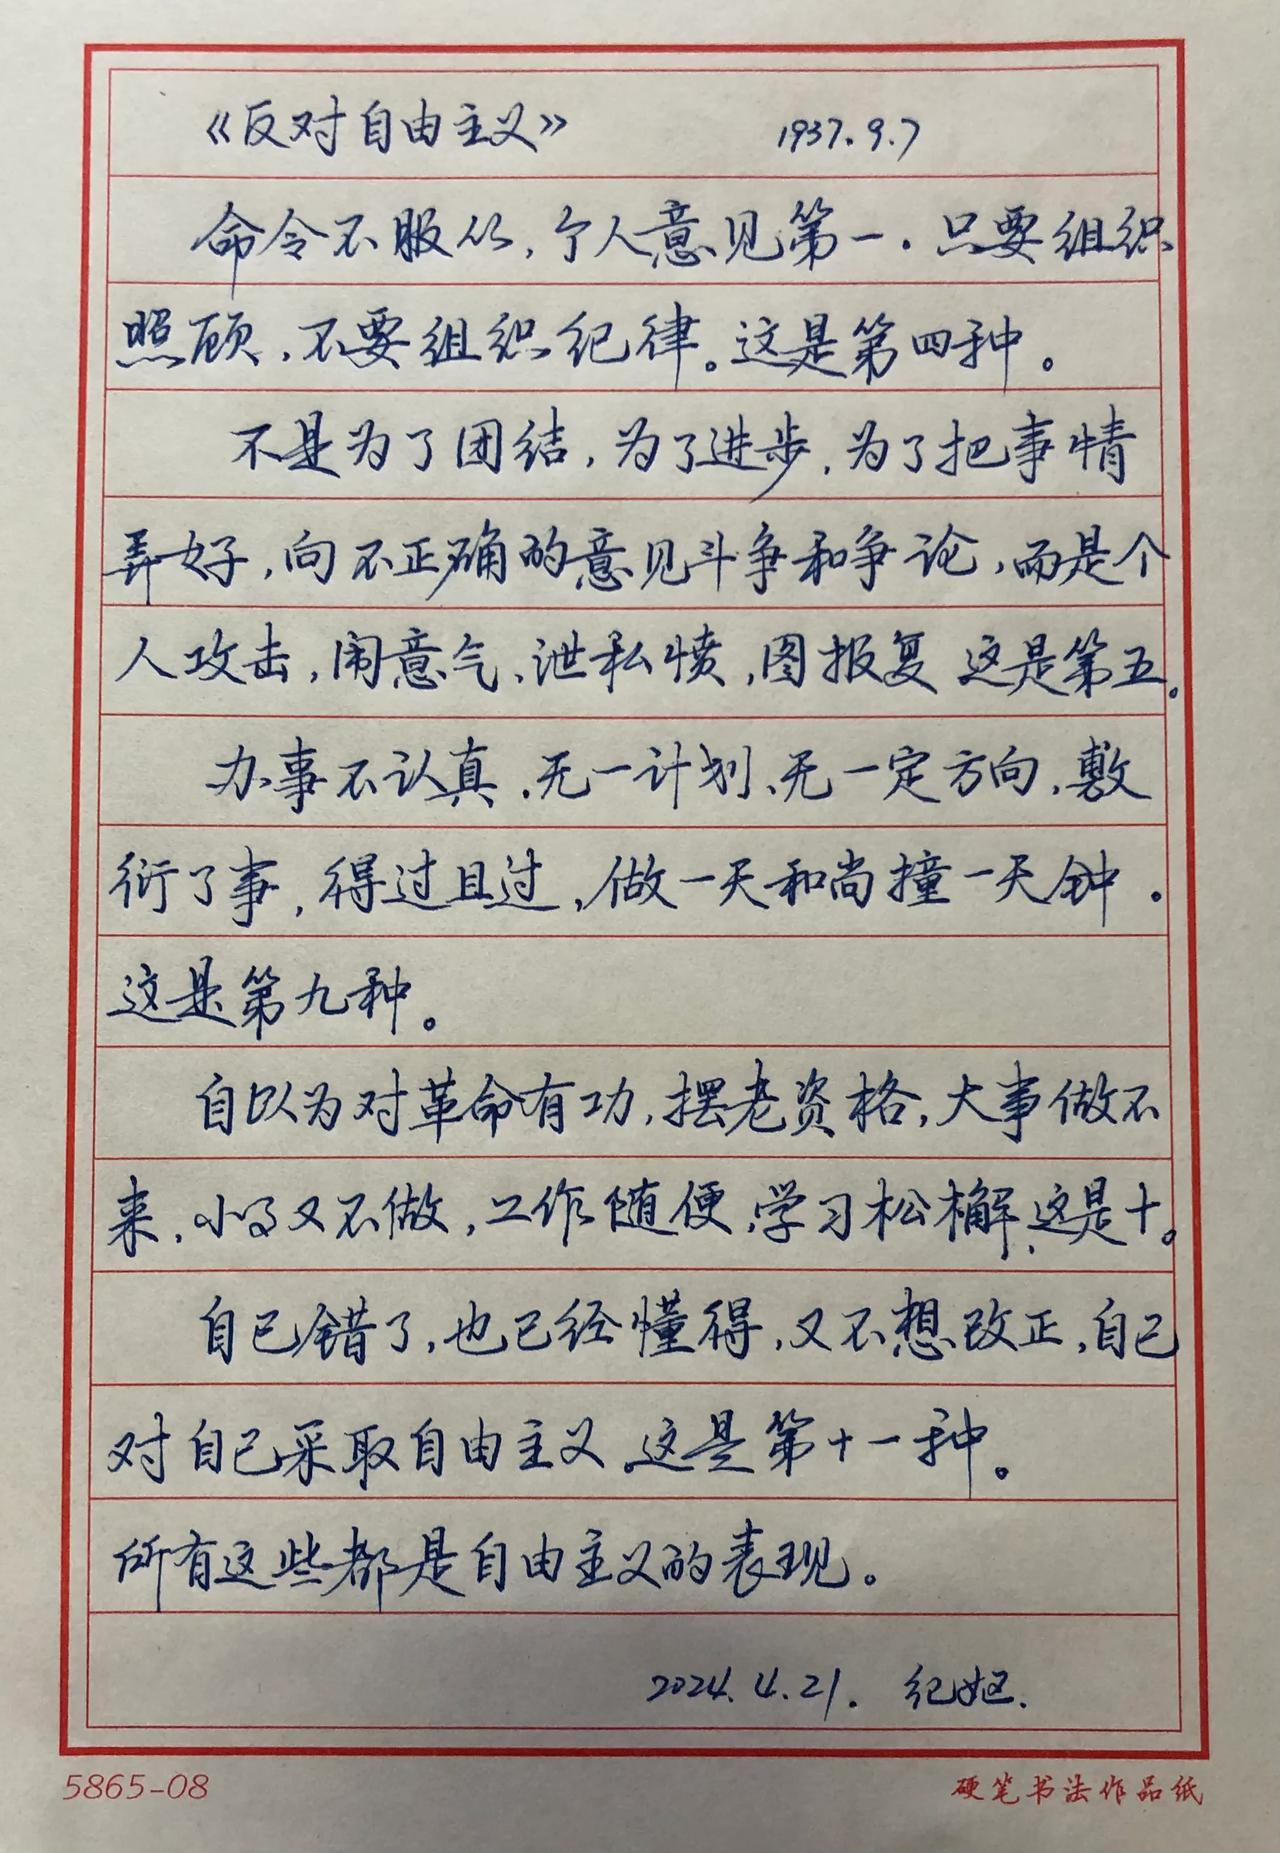 《反对自由主义》 1937.9.7
命令不服从,个人意见第一.只要组织
照顾,不要组织纪律。这是第四种。
不是为了团结,为了进步,为了把事情
弄好,向不正确的意见斗争和争论,而是个
人攻击,闹意气、泄私愤,图报复 这是第五。
办事不认真,无一计划、无一定方向,敷
衍了事,得过且过,做一天和尚撞一天钟.
这是第九种。
自以为对革命有功,摆老资格,大事做不
来,小事又不做,工作随便,学习松懈,这是十。
自己错了,也已经懂得,又不想改正,自己
对自己采取自由主义.这是第十一种。
所有这些都是自由主义的表现。
2024.4.21. 纪妪.
5865-08 硬笔书法作品纸